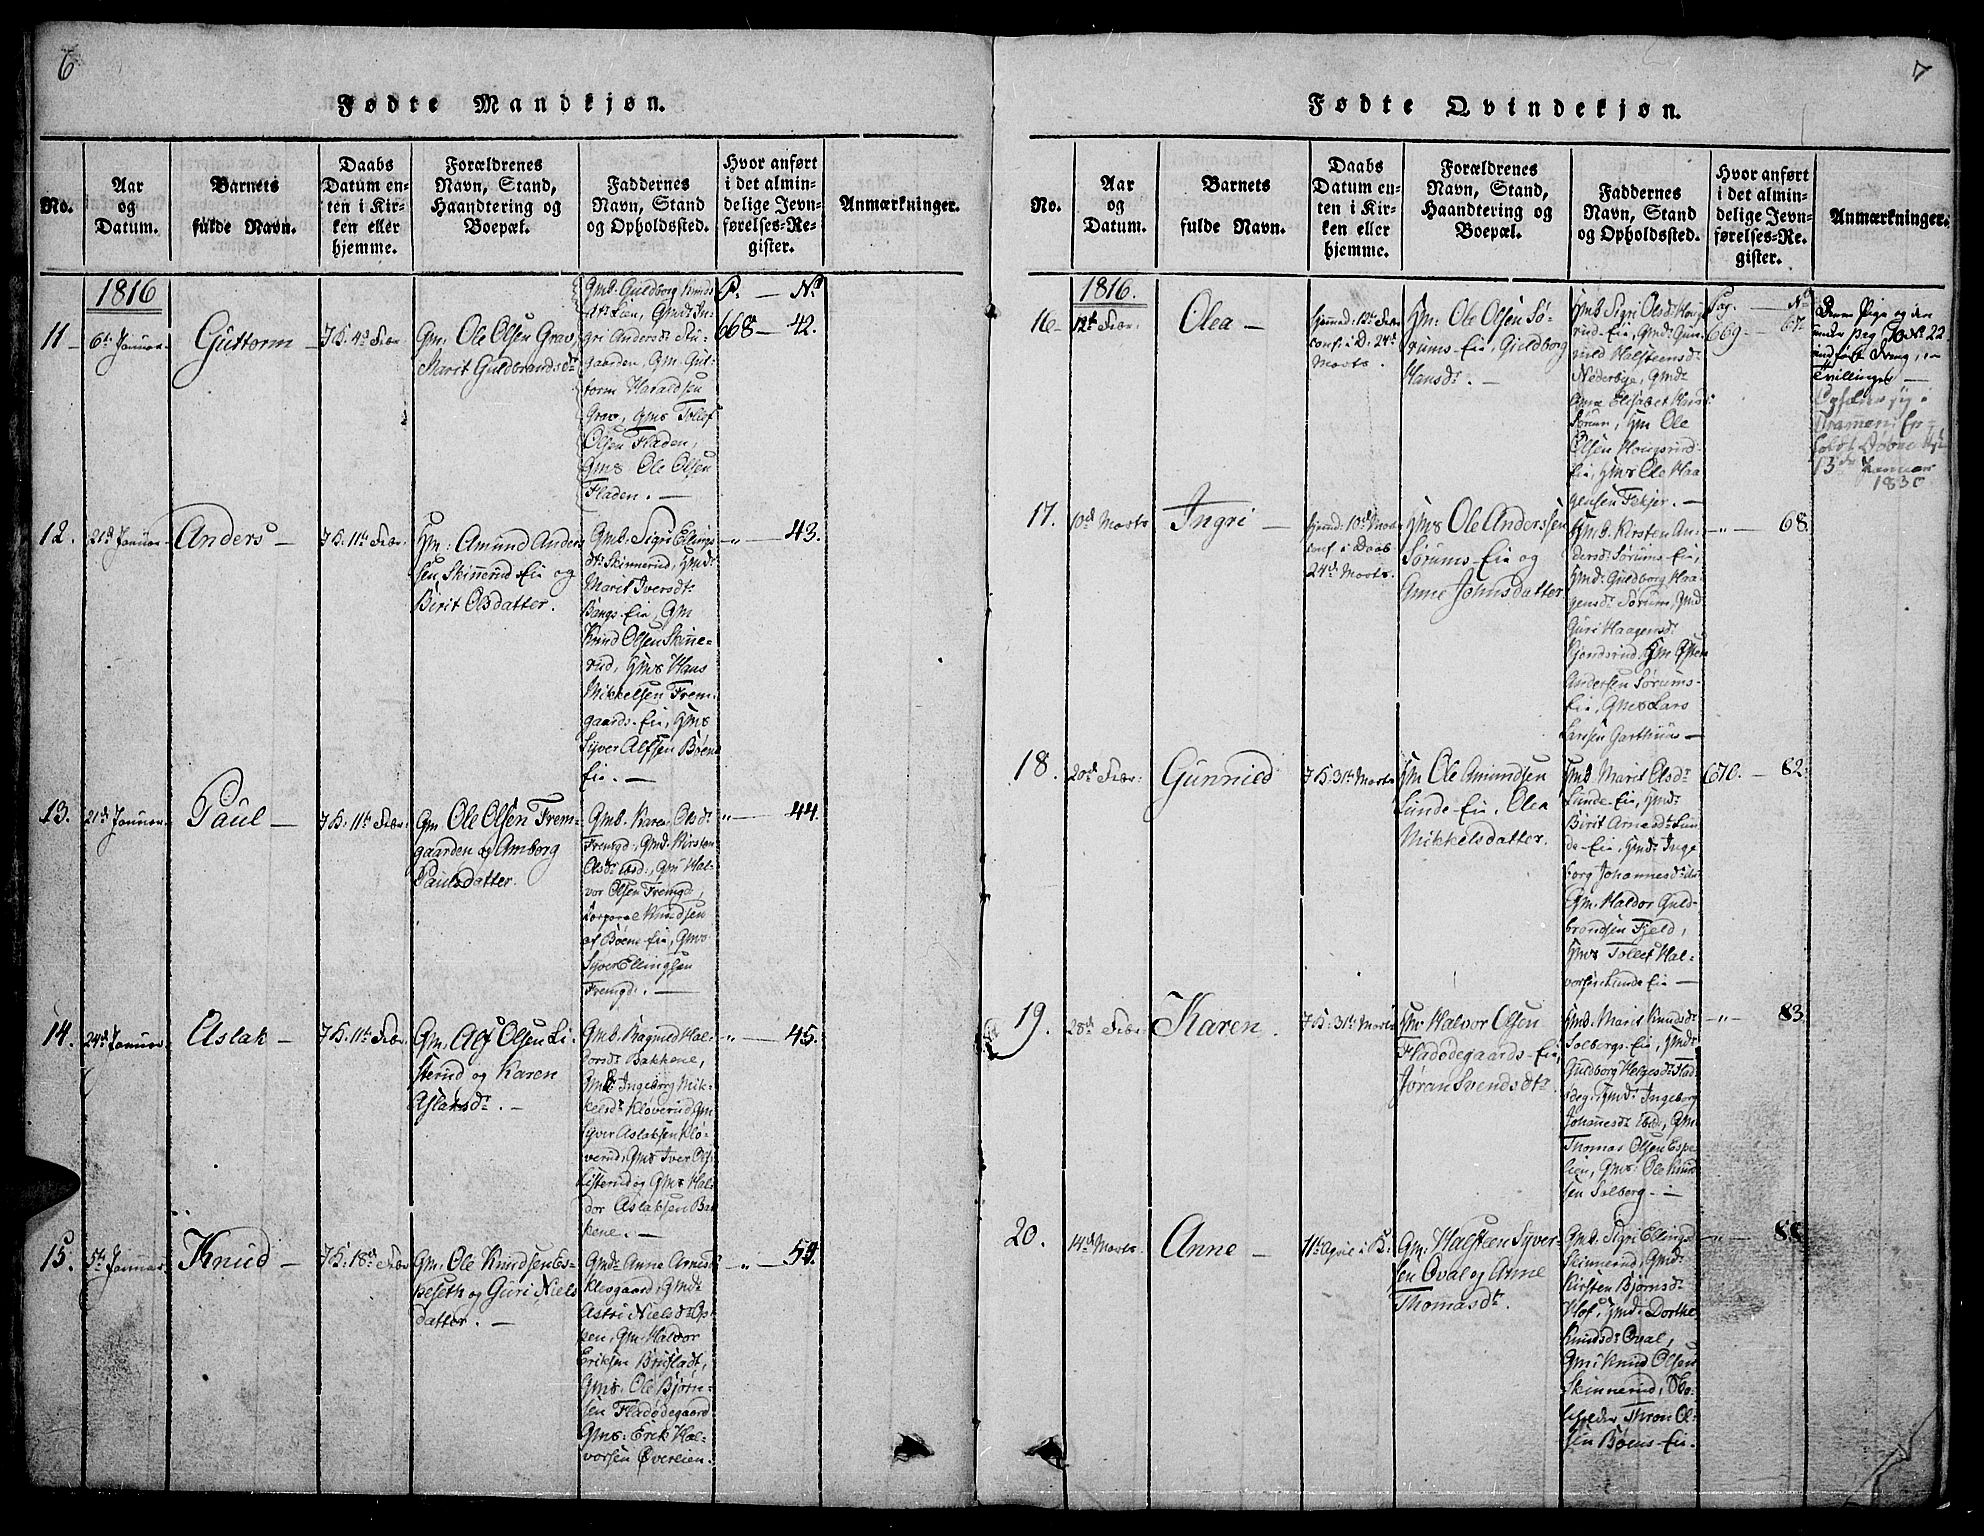 6
Fødte Mandkjøn.
No.
Aar
og
Datum.
Barnets
fulde Navn.
Daabs
Datum en-
ten i Kir-
ken eller
hjemme.
Forældrenes
Navn, Stand,
Haandtering og
Boepæl.
Faddernes
Navn, Stand
og Opholdssted.
Hvor anført
i det almin-
delige Jevn-
førelses-Re-
gister.
Anmærkninger.
1816
P. — No
11 — 6te Januar
Guttorm —
Gm: Ole Olsen Grav,
Marit Guldbrandsdr
Gmd: Ingri
Grav, Gms Tollef
Olsen Fladen,
Gms Ole Olsen
Fladen. —
668 — 42.
12. 21d Januar
Anders —
11te Febr.
Hm: Amund Anders
sen Skinnerud Eie og
Birit Olsdatter.
Gmb: Sigri Ellings
dtr Skinnerud, Hmdr
Marit Iversdtr
Bangs-Eie, Gm
Knud Olsen Skinne-
rud, Hms Hans
Mikkelsen Frem-
gaards-Eie, Hms
Syver Alfsen Bøens
Eie. —
„ — 43.
13. 21d Januar
Paul —
11te Febr:
Gm Ole Olsen Frem-
gaarden og Amborg
Paulsdatter.
Gmb. Karen Olsdr
Fremgd, Gmdr Kirsten
Olsdr ibid:, Gm Hal-
vor Olsen Fremgd,
Corporal Knudsen
af Bøens Eie, Gms
Syver Ellingsen
Fremgd. —
„ — 44.
14. 24d Januar
Aslak —
11te Febr
Gm. Alf Olsen Li-
sterud og Karen
Aslaksdr. —
Gmb. Ragnild Hal-
vorsdr Bakkene,
Gmd: Ingeborg Mik-
kelsdr Kløverud, Gm
Syver Aslaksen Klø-
verud, Gms Iver Ols
Listerud og Gms Hal-
dor Aslaksen Bak
kene. —
„ — 45.
15. 5te Januar
Knud —
18d Febr
Gm. Ole Knudsen Es-
peseth og Guri Niels
datter. —
Gmdr Anne Arnesd
Klevgaard, Gmdr
Astri Nielsdr
Gm. Halvor
Eriksen
Gms. Ole Bjørn-
sen Fladødegaard
Gms: Erik Hal-
vorsen Øvereien.
„ — 54.
7
Fødte Qvindekjøn.
No.
Aar
og
Datum.
Barnets
fulde Navn.
Daabs
Datum en-
ten i Kir-
ken eller
hjemme.
Forældrenes
Navn, Stand,
Haandtering og
Boepæl.
Faddernes
Navn, Stand
og Opholdssted.
Hvor anført
i det almin-
delige Jevn-
førelses-Re-
gister.
Anmærkninger.
1816.
Pag. — No
16 — 12te Febr:
Olea —
hjemmed: 12te Febr
conf. i D. 24d
Marts.
Hm: Ole Olsen Sø-
rums-Eie, Guldborg
Hansdr. —
Hmb Sigri Olsdr
Halsteensdr
Nederbye, Gmdr
Anne Elisabet
Sørum, Hm Ole
Olsen
Eie, Hms Ole Haa-
gensen
669 — 67.
Denne Pige og den
under pag. 10 No 22
indførte Dreng, er
Tvillinger —
13de Januar
1830
17. 10d Marts
Ingri —
hjemmed: 10d Marts
conf. i Daab
24d Marts.
Hms Ole Anderssen
Sørums-Eie og
Anne Johnsdatter
Hmb. Kirsten An-
dersdr Sørums-Eie,
Hmd: Guldborg Haa-
gensdr Sørum, Hmd
Guri Haagensdr
Anderssen Sørums-
Eie, Gms Lars
Larsen Garthuus —
„ — 68.
18. 20d Febr:
Gunnild
31te Marts
Hm Ole Amundsen
Lunde-Eie, Olea
Mikkelsdatter.
Hmb Marit Olsdr
Lunde-Eie, Hmdr
Birit Arnesdr Lun
de-Eie, Hmdr Inge
borg Johannesdr ibid
Gm. Haldor Guld-
brandsen Fjeld,
Hms Tollef Hal-
vorsen Lunde Eie —
670. — 82.
19. 28d Febr
Karen.
31te Marts
Hm: Halvor Olsen
Fladødegaards-Eie,
Jøran Svendsdtr
Gmb. Marit Knudsdr
Solbergs-Eie, Hmdr
Guldborg Helgesdr Flad
ødeg. Hmd: Ingeborg
Johannesdr ibid, Gm
Thomas Olsen Espe
lien, Gms. Ole Knud
sen Solberg. —
„ — 83
20. 14d Marts
Anne —
11te April i K.
Gm: Halsteen Syver-
sen Oval og Anne
Thomasdr.
Gmb. Sigri Ellingsd
Skinnerud, Gmdr
Kirsten Bjørnsdr
Hof, Hmd: Dorthe
Knudsdr Oval,
Gm: Knud Olsen
Skinnerud,
Thron Ol-
sen Bøens-Eie.
„ — 88